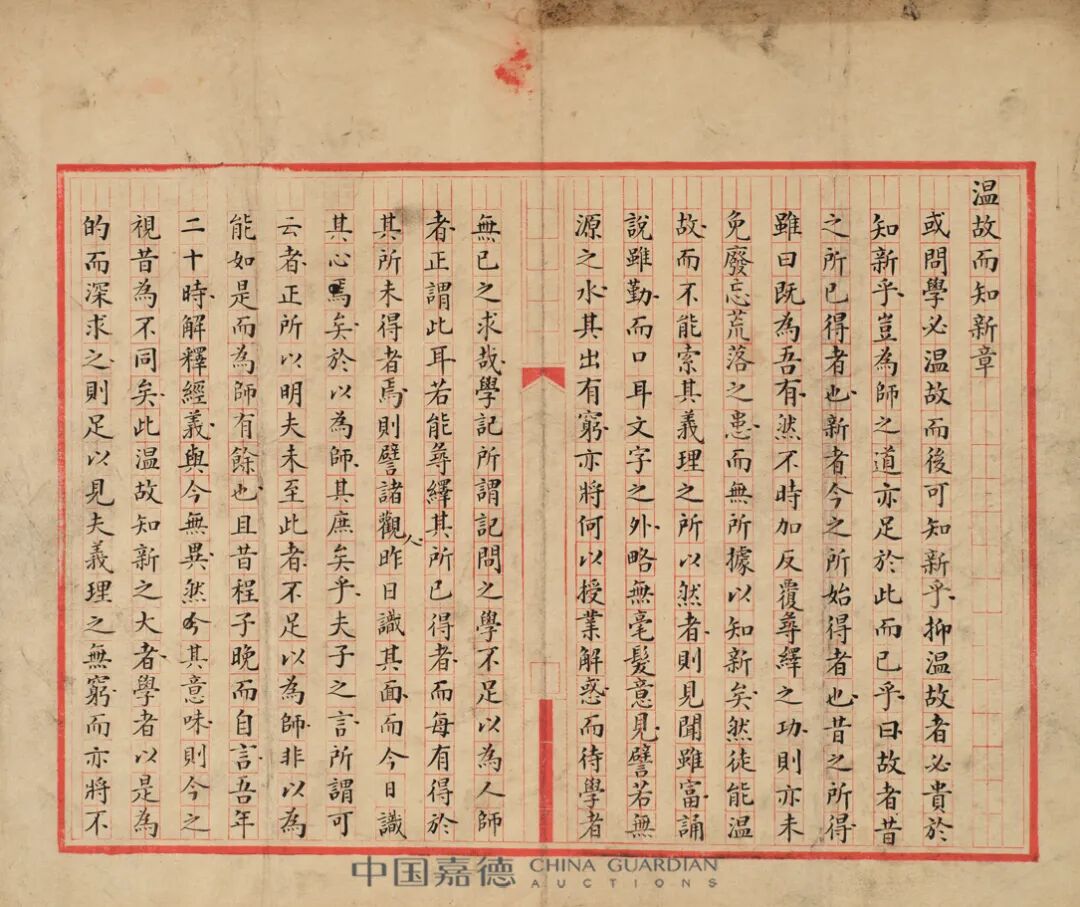 温故而知新章
或問學必温故而後可知新乎抑温故者必貴於
知新乎豈為師之道亦足於此而已乎曰故者昔
之所已得者也新者今之所始得者也昔之所得
雖曰既為吾有然不時加反覆尋繹之功則亦未
免廢忘荒落之患而無所據以知新矣然徒能温
故而不能索其義理之所以然者則見聞雖富誦
說雖勤而口耳文字之外略無毫髮意見譬若無
源之水其出有窮亦將何以授業解惑而待學者
無已之求哉學記所謂記問之學不足以為人師
者正謂此耳若能尋繹其所已得者而每有得於
其所未得者焉則譬諸觀人昨日識其面而今日識
其心焉矣於以為師其庶矣乎夫子之言所謂可
云者正所以明夫未至此者不足以為師非以為
能如是而為師有餘也且昔程子晚而自言吾年
二十時解釋經義與今無異然今其意味則今之
視昔為不同矣此温故知新之大者學者以是為
的而深求之則足以見夫義理之無窮而亦將不
中国嘉德 CHINA GUARDIAN AUCTIONS